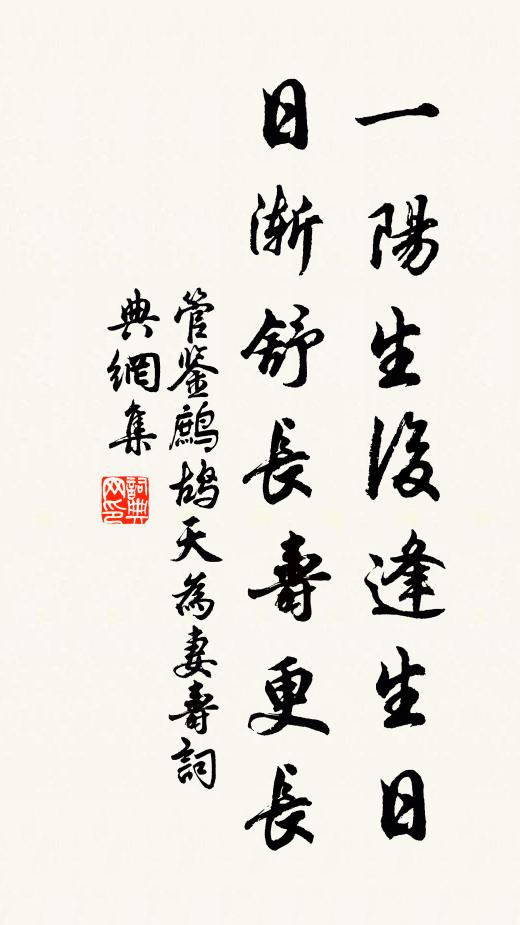 一陽生後逢生日
日漸舒長壽更長
管鉴鷓鴣天為妻壽詞
典網集
詞典
网印